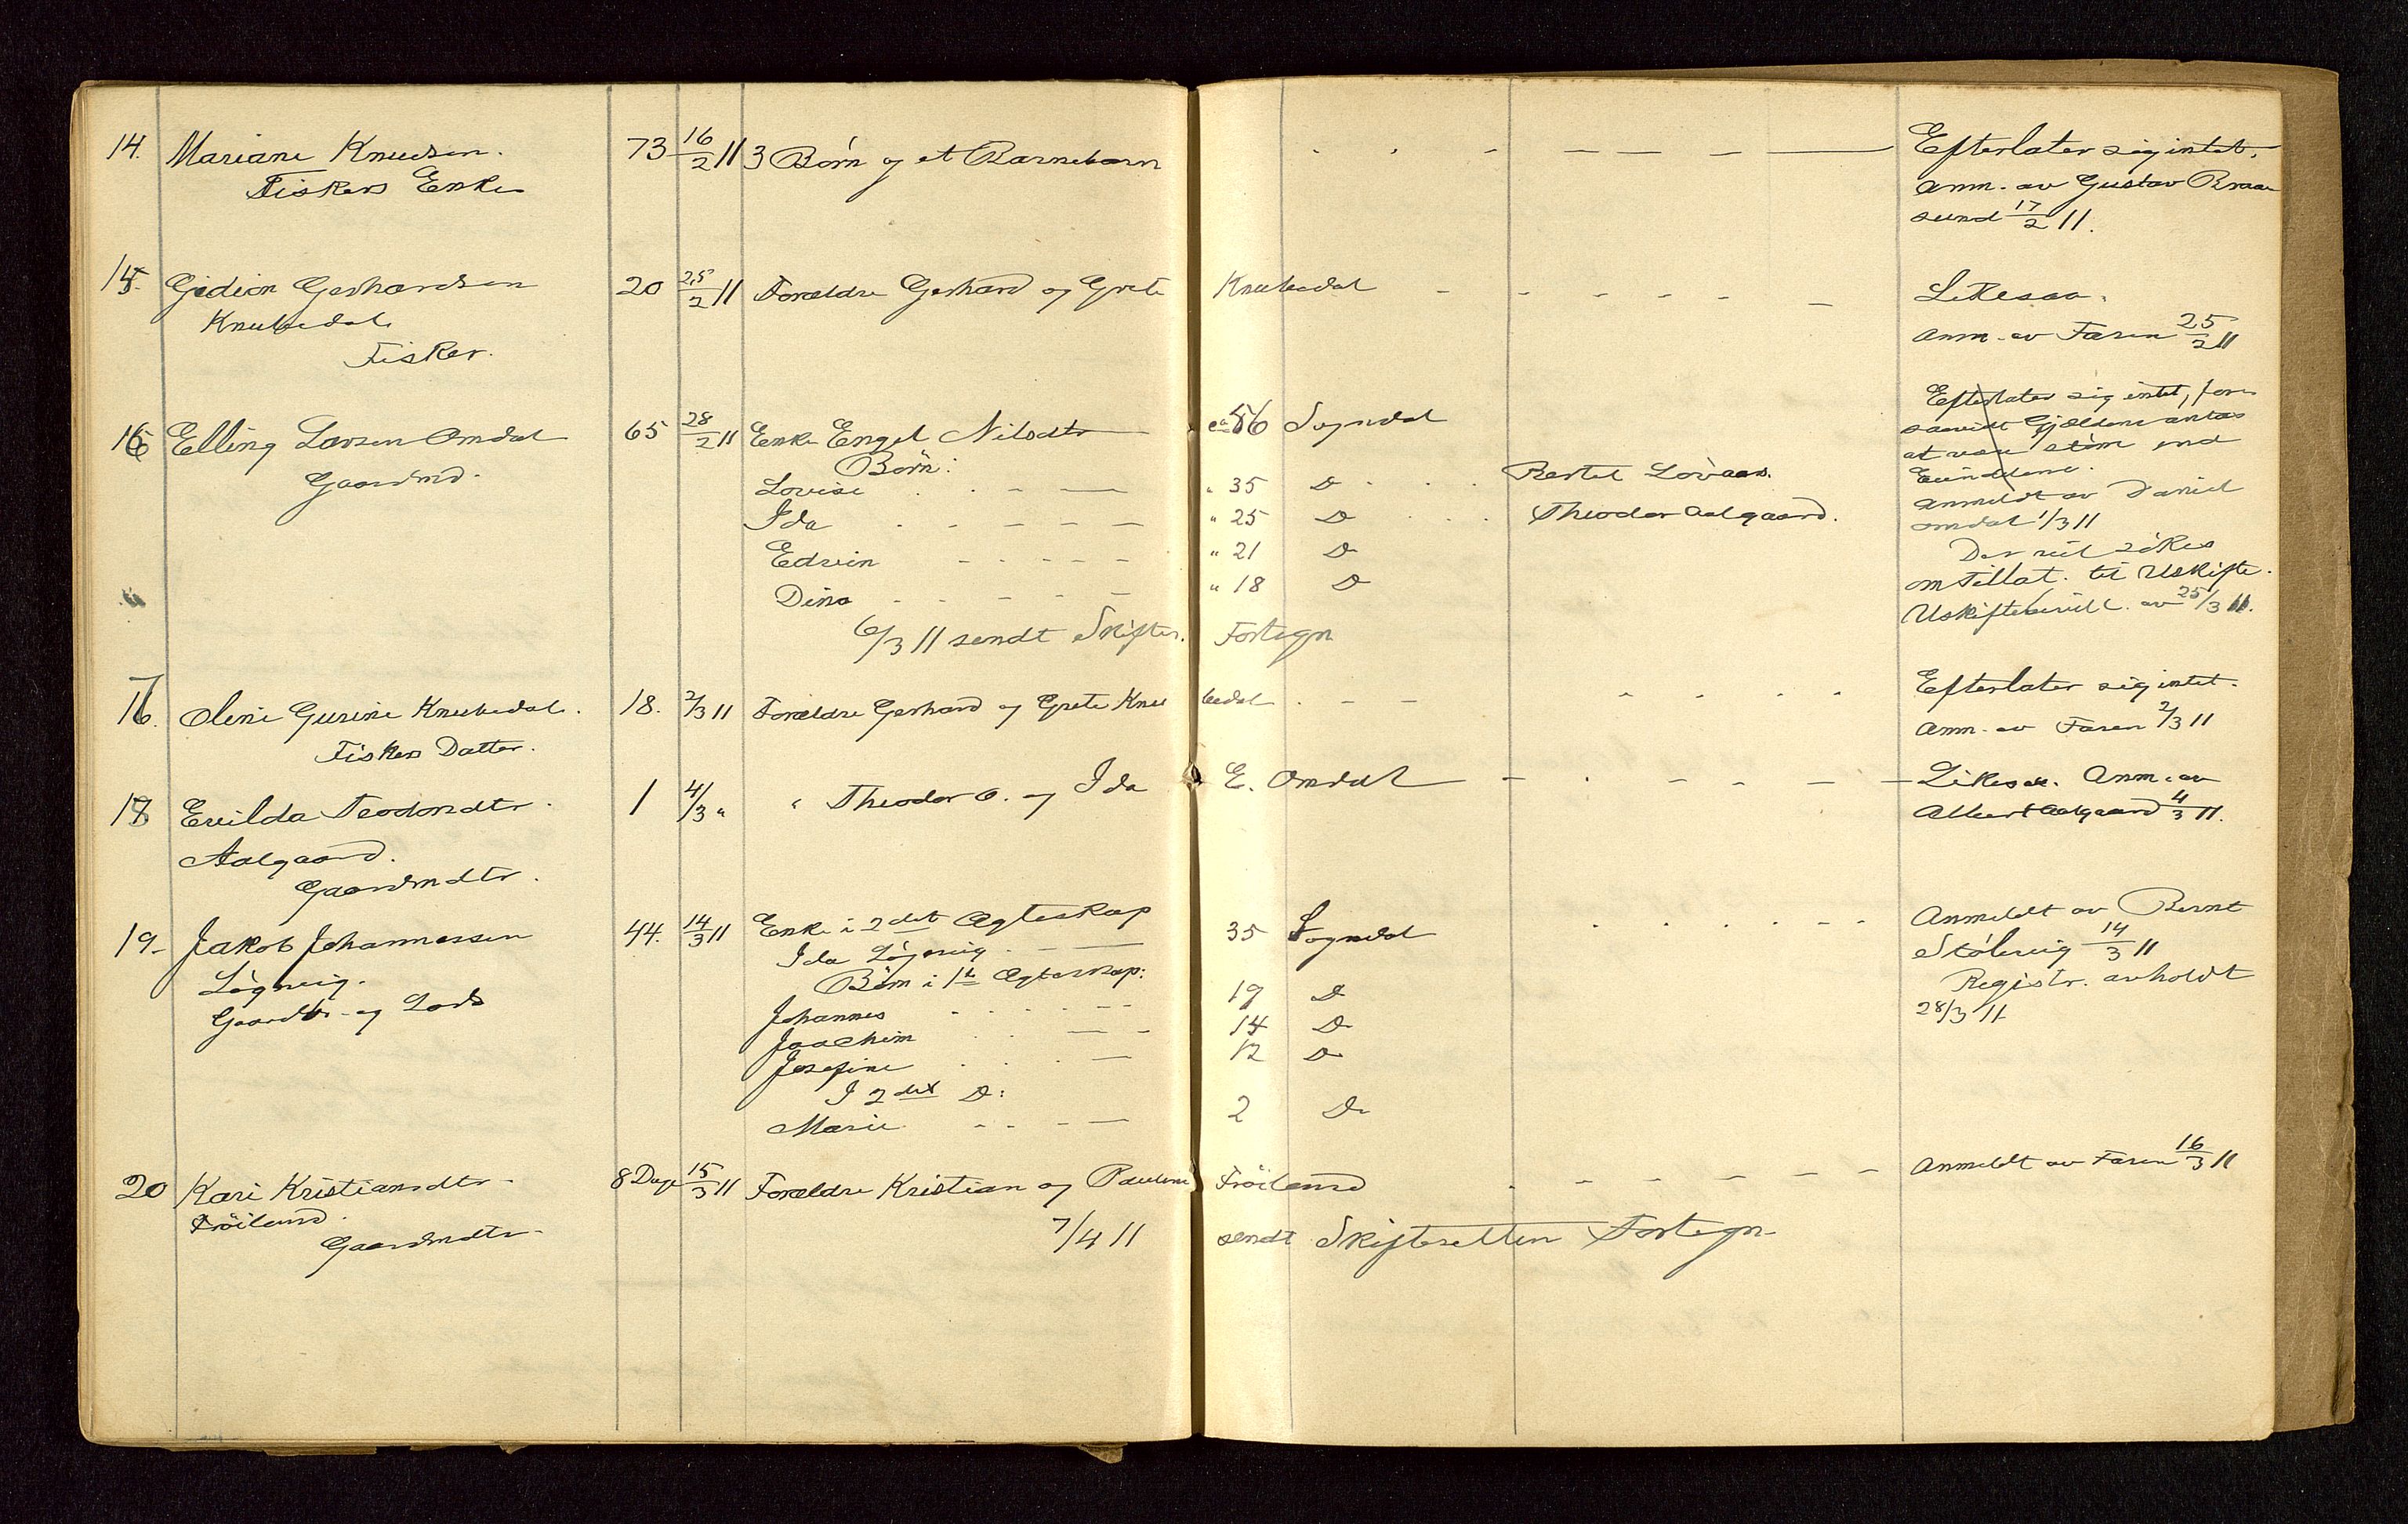 14. Mariane Knudsen. 73 16/2 11 3 Børn og et Barnebarn - - - - - Efterlater sig intet.
Fiskers Enke anm. av Gustav Braa
sund 17/2 11.
15. Gedion Gerhardsen 20 25/2 11 Forældre Gerhard og Grete Knubedal - - - - - Likesaa.
Knubedal anm. av Faren 25/2 11
Fisker.
16 Elling Larsen Omdal 65 28/2 11 Enke Engel Nilsdtr ca 56 Sogndal Efterlater sig intet, for
saavidt Gjælden antas
Gaardmd. Børn: at være större end
Lovise - - - " 35 D - - - Bertel Lovaas. Eiendelene.
Ida - - - - - " 25 D - - - Theodor Aalgaard. anmeldt av Daniel
Omdal 1/3 11
Edvin - - - - - " 21 D Der vil sökes
Dina - - - - - " 18 D om Tillat. til Uskifte.
6/3 11 sendt Skifter. Fortegn Uskiftebevill. av 25/3 11.
17. Oline Gurine Knubedal. 18. 2/3 11 Forældre Gerhard og Grete Knubedal - - - - - - Efterlater sig intet.
Fiskers Datter. Anm. av Faren 2/3 11
18 Evilda Teodorsdtr. 1 4/3 " " Theodor O. og Ida E. Omdal - - - - - - Likesaa. Anm. av
Aalgaard. Albert Aalgaard 4/3 11.
Gaardmdtr.
19. Jakob Johannessen 44. 14/3 11 Enke i 2det Ægteskap Anmeldt av Bernt
Lögevig. Ida Lögevig - - - 35 Sogndal - - - - - - Stölevig 14/3 11
Gaardbr. og Lods Børn i 1ste Ægteskap: Registr. avholdt
Johannes - - - - - 19 D 28/3 11
Joachim - - - - 14 D
Josefine - - - - 12 D
I 2det D:
Marie - - - - 2 D
20 Kari Kristiansdtr. 8 Dage 15/3 11 Forældre Kristian og Pauline Fröiland - - - - - - Anmeldt av Faren 16/3 11
Fröiland.
Gaardmdtr. 7/4 11 sendt Skifteretten Fortegn.